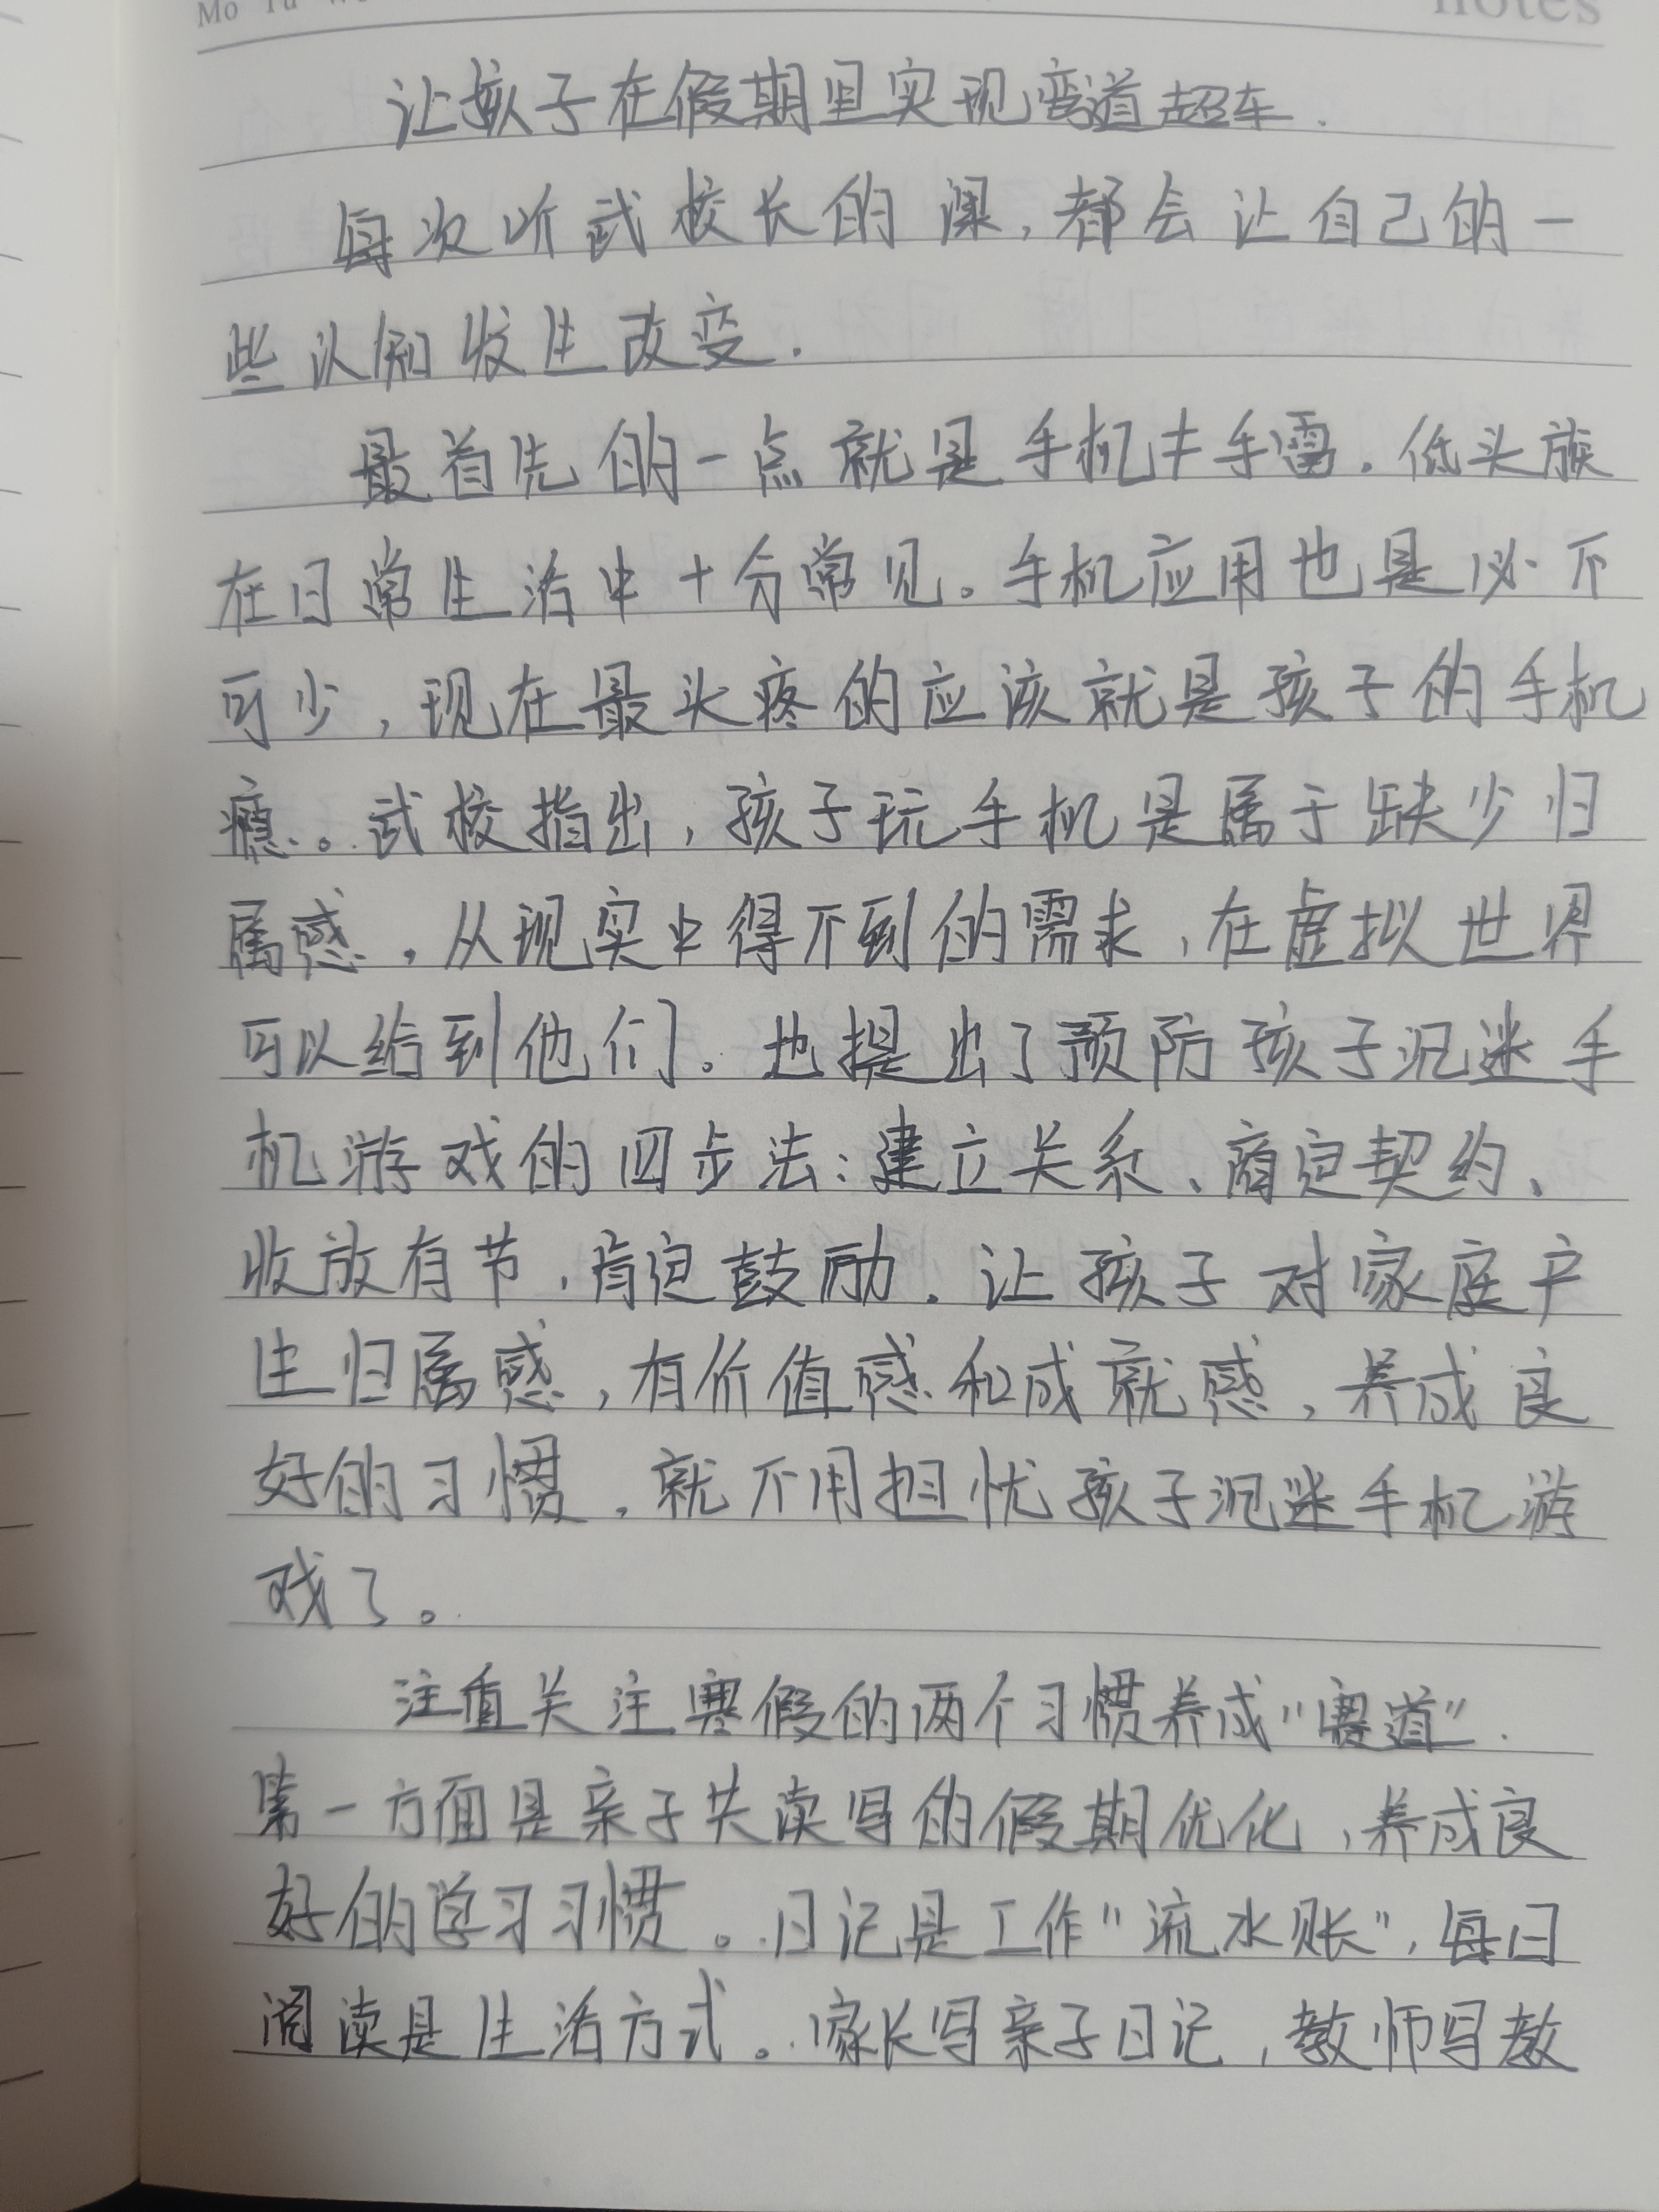 Mo Tu
notes
让孩子在假期里实现弯道超车.
每次听武校长的课,都会让自己的一
些认知发生改变.
最首先的一点就是手机≠手雷.低头族
在日常生活中十分常见。手机应用也是必不
可少,现在最头疼的应该就是孩子的手机
瘾。武校指出,孩子玩手机是属于缺少归
属感.从现实中得不到的需求,在虚拟世界
可以给到他们。也提出了预防孩子沉迷手
机游戏的四步法:建立关系、商定契约、
收放有节,肯定鼓励.让孩子对家庭产
生归属感,有价值感和成就感,养成良
好的习惯.就不用担忧孩子沉迷手机游
戏了。
注重关注寒假的两个习惯养成"赛道".
第一方面是亲子共读写的假期优化,养成良
好的学习习惯。日记是工作"流水账",每日
阅读是生活方式。家长写亲子日记,教师写教